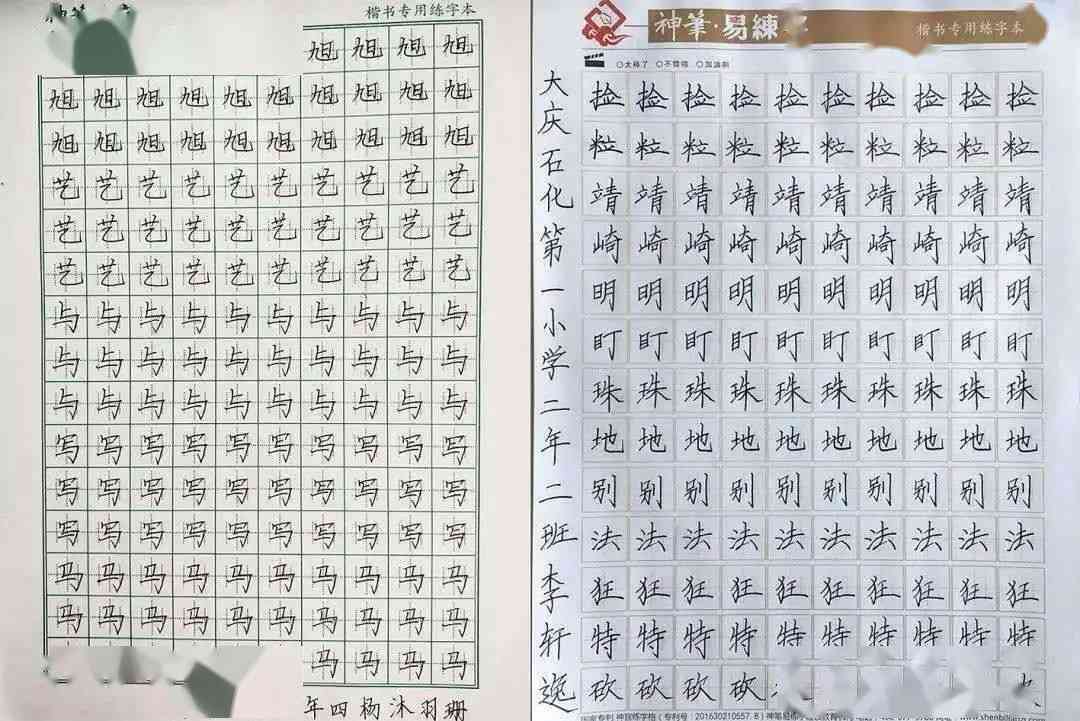 楷书专用练字本
旭旭旭旭
旭旭旭旭旭旭旭旭旭旭
旭旭旭旭旭旭旭旭旭旭
艺艺艺艺艺艺艺艺艺艺
艺艺艺艺艺艺艺艺艺艺
艺艺艺艺艺艺艺艺艺艺
与与与与与与与与与与
与与与与与与与与与与
与与与与与与与与与与
写写写写写写写写写写
写写写写写写写写写写
写写写写写写写写写写
马马马马马马马马马马
马马马马马马马马马马
马马马马
年四杨沐羽珊
神筆·易練
楷书专用练字本
○太棒了 ○不错哦
大庆石化第一小学二年二班李轩逸
捡捡捡捡捡捡捡捡捡捡
粒粒粒粒粒粒粒粒粒粒
靖靖靖靖靖靖靖靖靖靖
崎崎崎崎崎崎崎崎崎崎
明明明明明明明明明明
盯盯盯盯盯盯盯盯盯盯
珠珠珠珠珠珠珠珠珠珠
地地地地地地地地地地
别别别别别别别别别别
法法法法法法法法法法
狂狂狂狂狂狂狂狂狂狂
特特特特特特特特特特
砍砍砍砍
(专利号:201630210557.8)